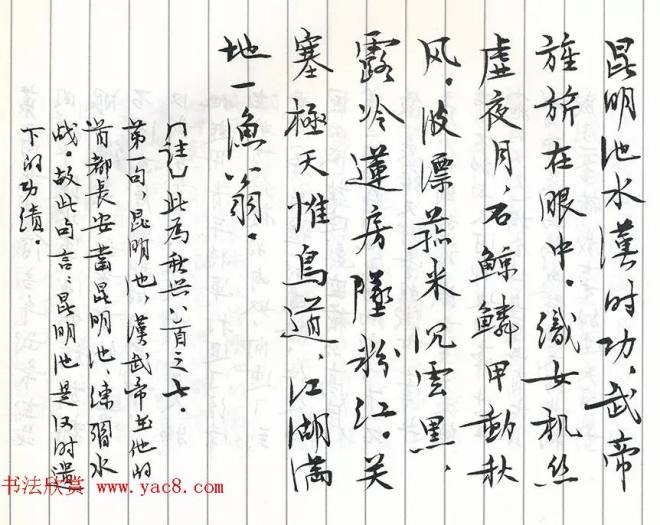 昆明池水漢时功,武帝
旌旂在眼中。織女机丝
虚夜月,石鯨鱗甲動秋
风。波漂菰米沉雲黑,
露冷蓮房墜粉红。关
塞極天惟鳥道,江湖滿
地一漁翁。
[注]此為秋兴八首之七。
第一句昆明池,漢武帝在他的
首都長安凿昆明池,練習水
战。故此句言,昆明池是汉时遗
下的功绩。
书法欣赏 www.yac8.com